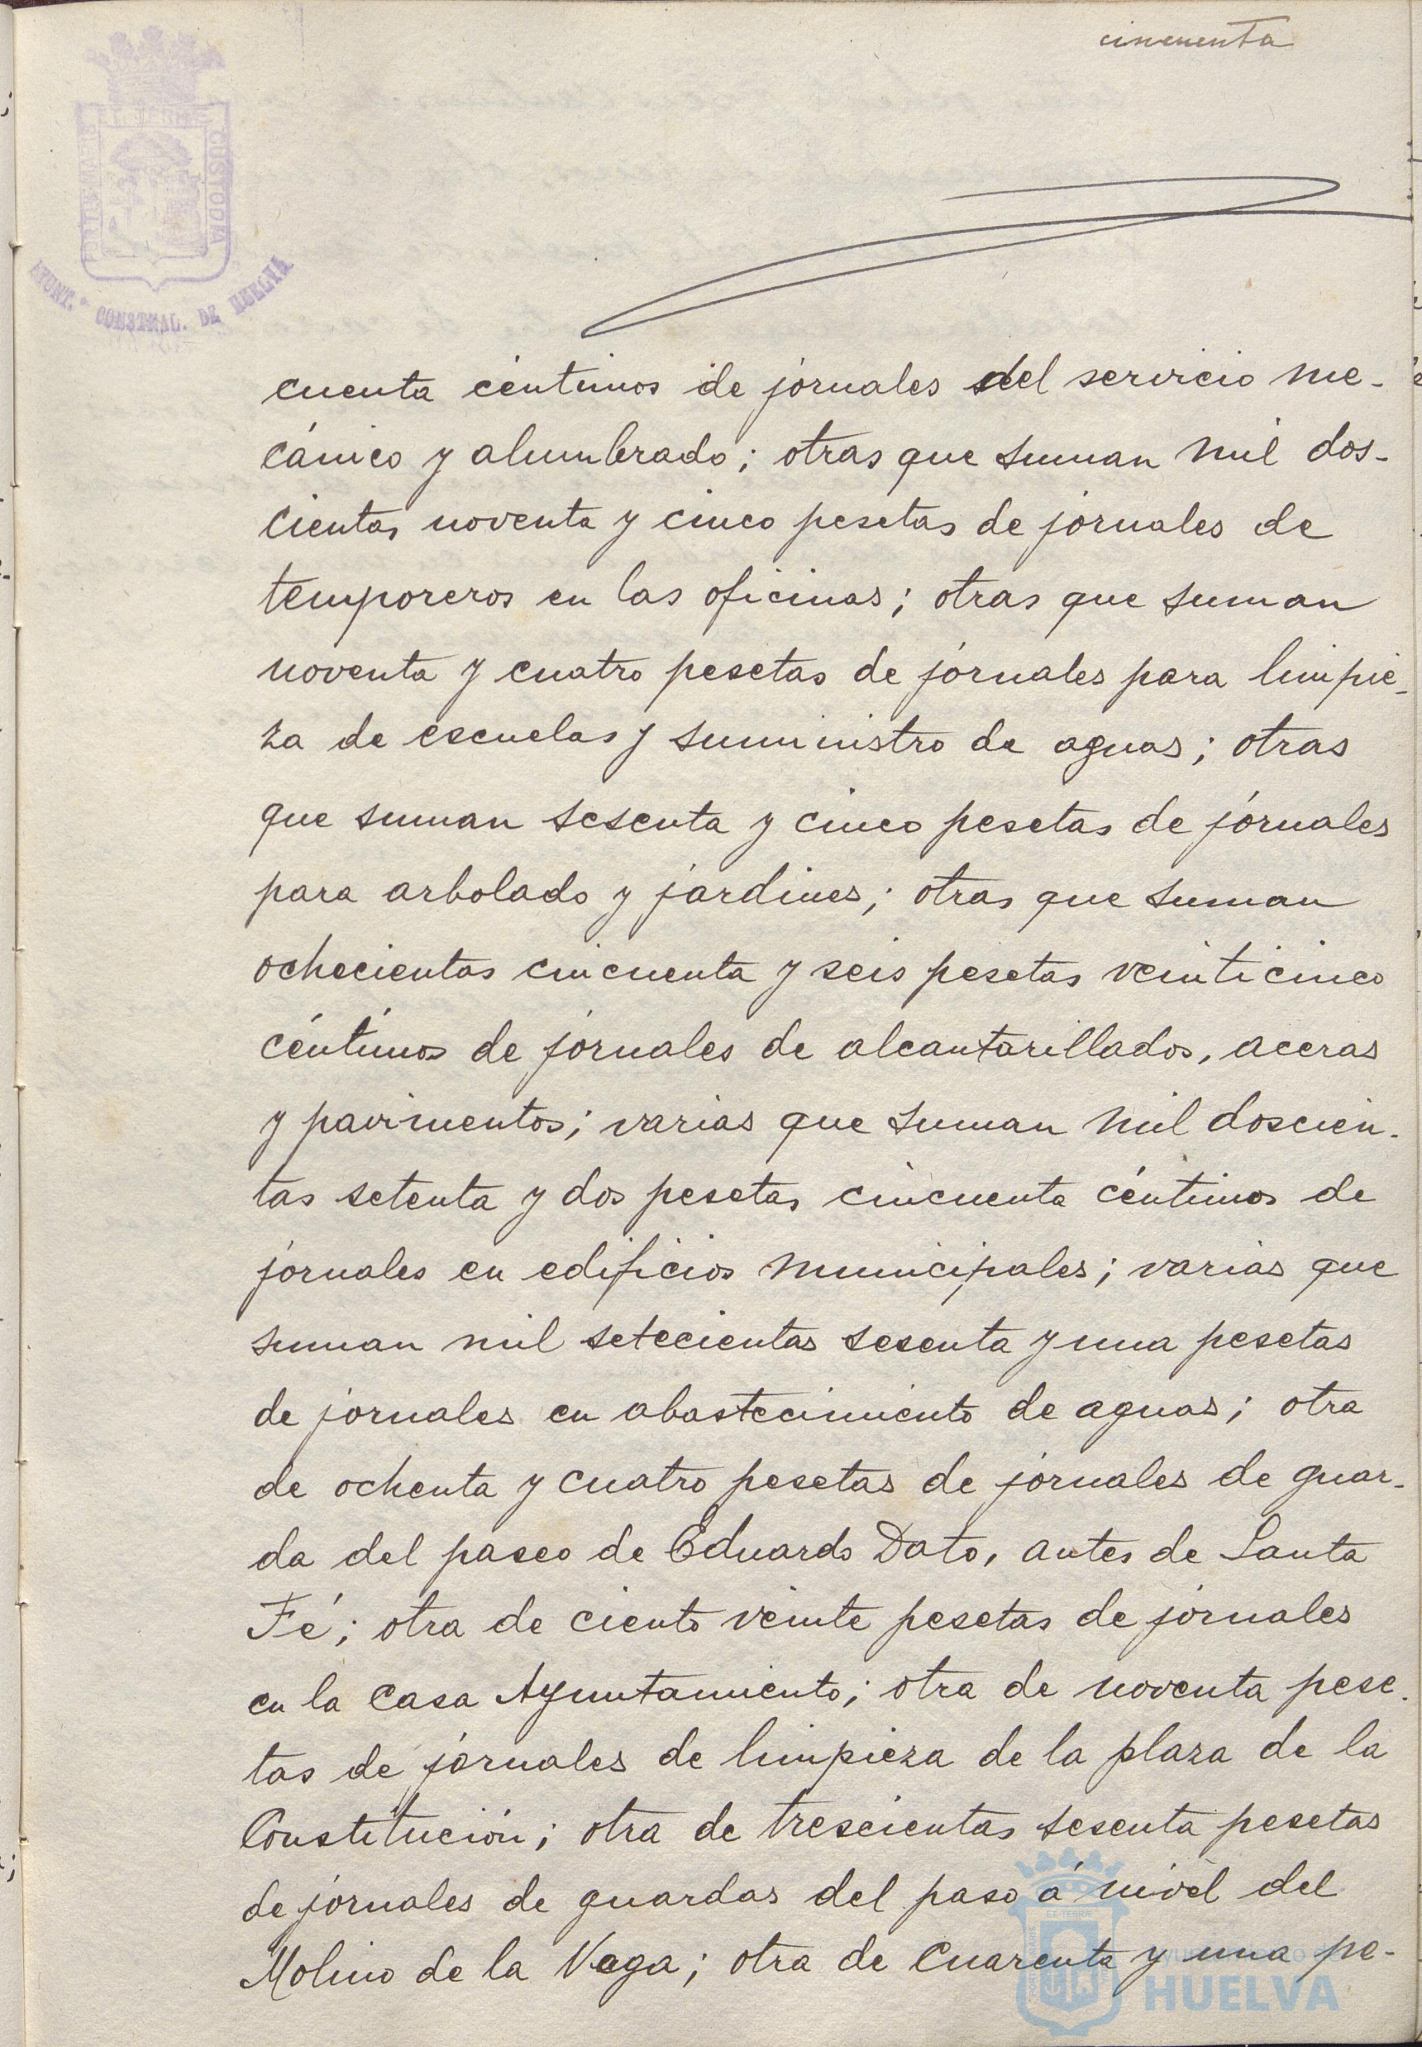 cincuenta
PORTUS MARIS
ET TERRE
CUSTODIA
AYUNT.º CONSTNAL. DE HUELVA
cuenta céntimos de jornales del servicio me-
cánico y alumbrado; otras que suman mil dos-
cientas noventa y cinco pesetas de jornales de
temporeros en las oficinas; otras que suman
noventa y cuatro pesetas de jornales para limpie-
za de escuelas y suministro de aguas; otras
que suman sesenta y cinco pesetas de jornales
para arbolado y jardines; otras que suman
ochecientas cincuenta y seis pesetas veinticinco
céntimos de jornales de alcantarillados, aceras
y pavimentos; varias que suman mil doscien-
tas setenta y dos pesetas cincuenta céntimos de
jornales en edificios municipales; varias que
suman mil setecientas sesenta y una pesetas
de jornales en abastecimiento de aguas; otra
de ochenta y cuatro pesetas de jornales de guar-
da del paseo de Eduardo Dato, antes de Santa
Fé; otra de ciento veinte pesetas de jornales
en la casa Ayuntamiento; otra de noventa pese-
tas de jornales de limpieza de la plaza de la
Constitución; otra de trescientas sesenta pesetas
de jornales de guardas del paso á nivel del
Molino de la Vega; otra de cuarenta y una pe-
HUELVA